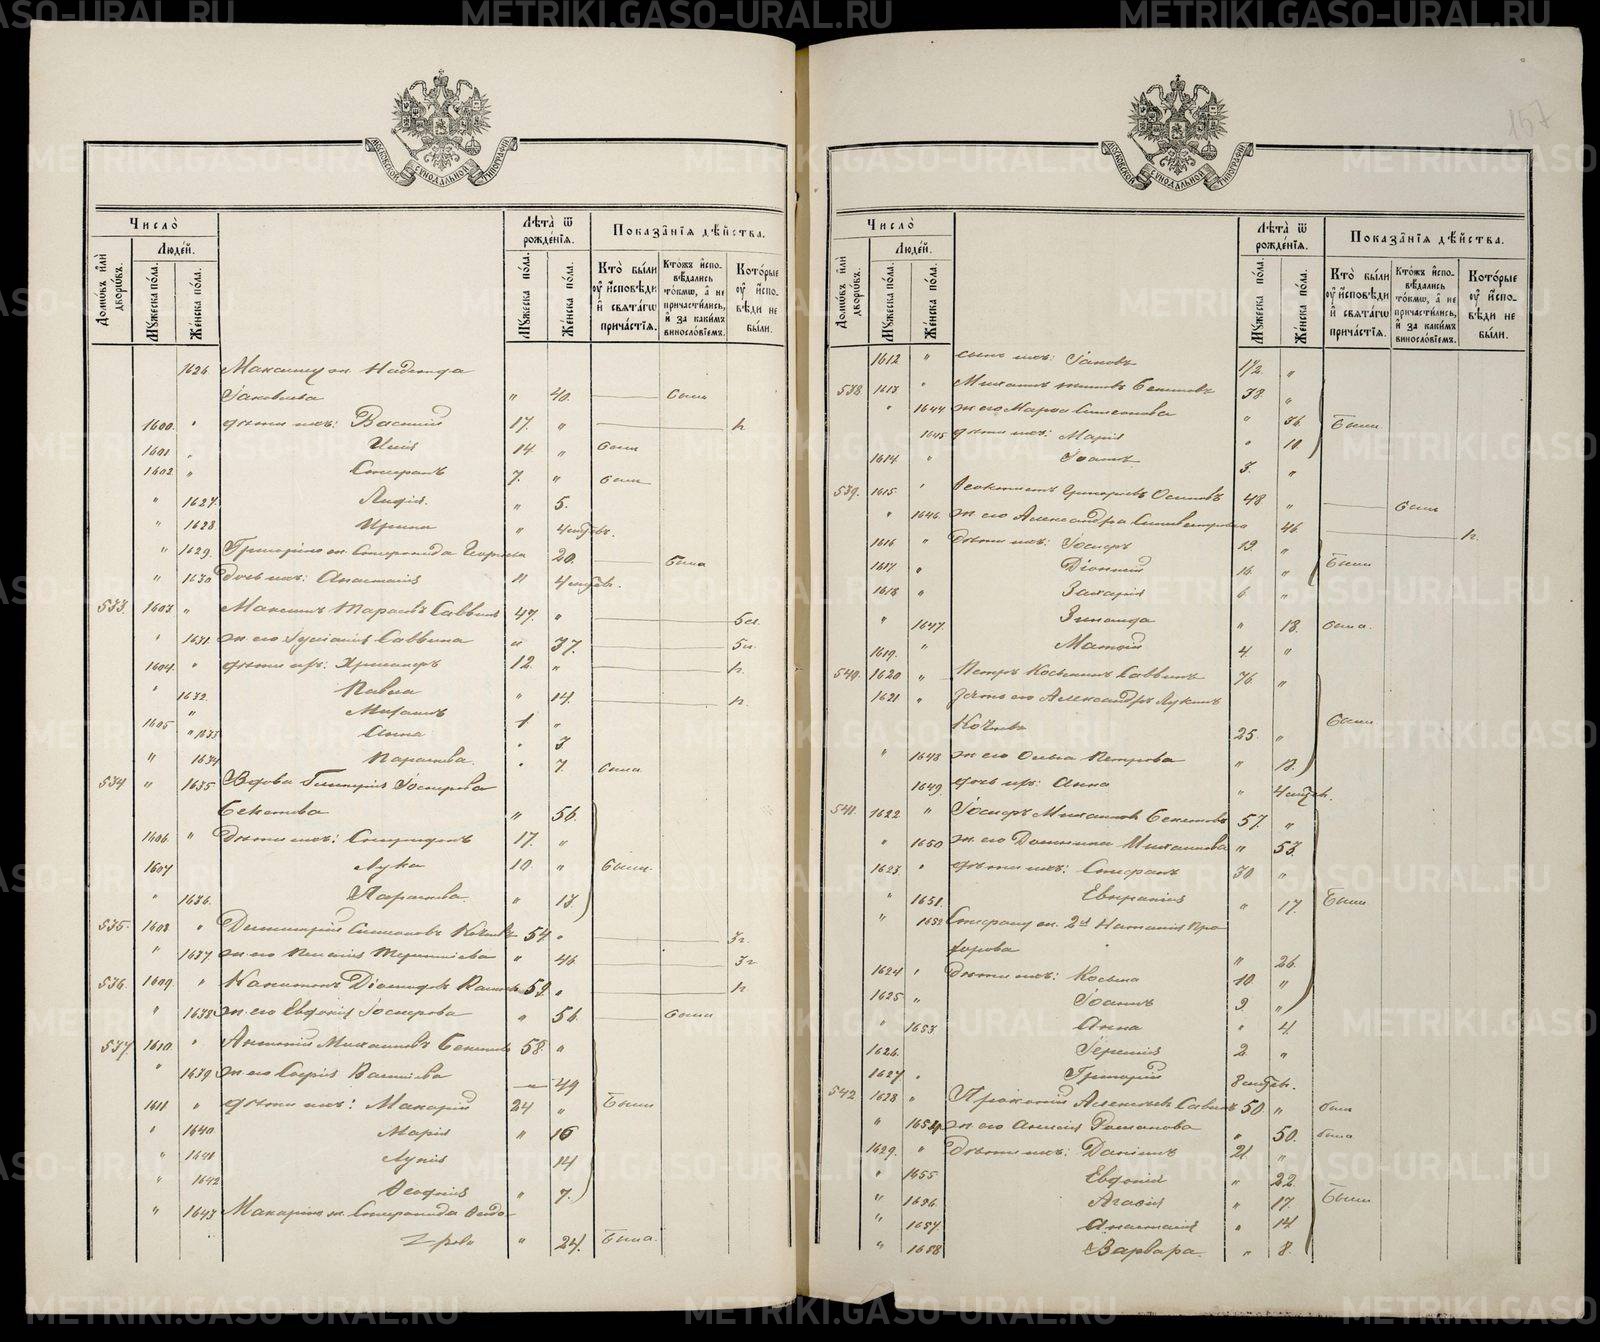 METRIKI.GASO-URAL.RU
157
МОСКОВСКОЙ СѴНОДАЛЬНОЙ ТИПОГРАФІИ
Число̀
Домѡвъ и҆лѝ дворѡвъ.
Люде́й.
Мꙋжеска по́ла.
Же́нска по́ла.
Лѣ́та ѿ рожде́нїѧ.
Мꙋжеска по́ла.
Же́нска по́ла.
Показа̑нїѧ дѣ́йства.
Кто̀ бы́ли оу҆ и҆сповѣ́ди и҆ свѧта́гѡ прича́стїѧ.
Кто́жъ и҆спо­вѣ́дались то́кмѡ, а҆ не причасти́лись, и҆ за каки́мъ винослові́емъ.
Кото́рые оу҆ и҆спо­вѣ́ди не бы́ли.
1626 Максиму ж. Надежда
Іаковлева " 40. были
1600. " дѣти ихъ: Василій 17. " н
1601 " Илія 14 " были
1602 " Стефанъ 7. " были
" 1627. Лидія. " 5.
" 1628 Ирина " 4 мѣсяц.
" 1629. Григорію ж. Степанида Георгіева 20. была
" 1630 дочь ихъ: Анастасія " 4 мѣсяц.
533. 1603 " Максимъ Тарасовъ Саввинъ 47. "
" 1631. ж. его Іуліанія Саввина " 37.
1604. " дѣти ихъ: Христофоръ 12. " н.
" 1632. Павла " 14. н.
1605 " Михаилъ 1 "
" 1633 Анна " 3
" 1634 Параскева. " 7. была
534 " 1635 Вдова Гликерія Іосифова
Бекетова " 56.
1606. " Дѣти ихъ: Спиридонъ 17. "
1607 Лука 10 " были.
" 1636. Параскева. " 13.
535. 1608 " Димитрій Симеоновъ 54. "
" 1637 ж. его Пелагія Терентіева " 46
536. 1609. " Капитонъ Діомидовъ 59. " н
" 1638 ж. его Евдокія Іосифова " 56. была
537 1610. " Антоній Михаиловъ Бекетовъ 58. "
" 1639 ж. его Софія Василіева — 49
1611 " дѣти ихъ: Макарій 24 " Были
" 1640 Марія " 16
" 1641 Лукія " 14
" 1642 Ѳеофанія " 7.
" 1643 Макарію ж. Степанида Ѳедо-
рова " 24. Была.
Число̀
Домѡвъ и҆лѝ дворѡвъ.
Люде́й.
Мꙋжеска по́ла.
Же́нска по́ла.
Лѣ́та ѿ рожде́нїѧ.
Мꙋжеска по́ла.
Же́нска по́ла.
Показа̑нїѧ дѣ́йства.
Кто̀ бы́ли оу҆ и҆сповѣ́ди и҆ свѧта́гѡ прича́стїѧ.
Кто́жъ и҆спо­вѣ́дались то́кмѡ, а҆ не причасти́лись, и҆ за каки́мъ винослові́емъ.
Кото́рые оу҆ и҆спо­вѣ́ди не бы́ли.
1612 " сынъ ихъ: Іаковъ 1/2. "
538. 1613 " Михаилъ Бекетовъ 38. "
" 1644 ж. его Марѳа Симеонова " 36. Были
1645 дѣти ихъ: Марія " 10.
1614 " Іоаннъ 3. "
539. 1615. " Ѳеоктистъ Григоріевъ Осиповъ 48 " были
" 1646. ж. его Александра Сильвестрова 46. н.
1616 " Дѣти ихъ: Іосифъ 19. "
1617 " Діонисій 16. " Были
1618 " Захарія 6 "
" 1647. Зинаида " 18. была.
1619. " Матѳій 4 "
540. 1620 " Петръ Косьминъ Саввинъ 76. "
1621 " Зять его Александръ Лукинъ
25. " были
" 1648 ж. его Ольга Петрова "
1649. дочь ихъ: Анна " 4 мѣсяц.
541. 1622 " Іосифъ Михаиловъ Бекетовъ 57. "
" 1650 ж. его Домника Михаилова " 53.
1623 " дѣти ихъ: Стефанъ 30 "
" 1651. Евпраксія " 17. Были
" 1652 Стефану ж. 2й Наталія Про-
хорова " 26.
1624 " Дѣти ихъ: Косьма 10 "
1625 " Іоаннъ 9. "
" 1653 Анна " 4
1626. Іеремія 2 "
1627 " Григорій 8 мѣсяц.
542 1628 " Прокопій Алексѣевъ Саввинъ 50 " былъ
" 1654 ж. его Анисія Романова " 50. была
1629. " Дѣти ихъ: Даніилъ 21. "
" 1655 Евдокія " 22.
" 1656. Агаѳія " 17. Были
" 1657 Анастасія " 14
" 1658 Варвара. " 8.